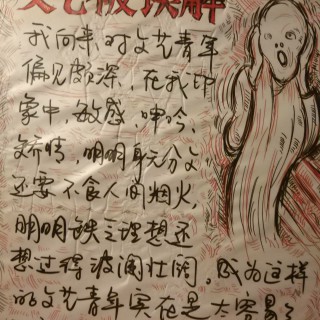 文艺被误解
我向来对文艺青年
偏见颇深，在我印
象中，敏感，呻吟，
矫情，明明身无分文
还要不食人间烟火，
明明缺乏理想还
想过得波澜壮阔 成为这样
的文艺青年实在是太容易了